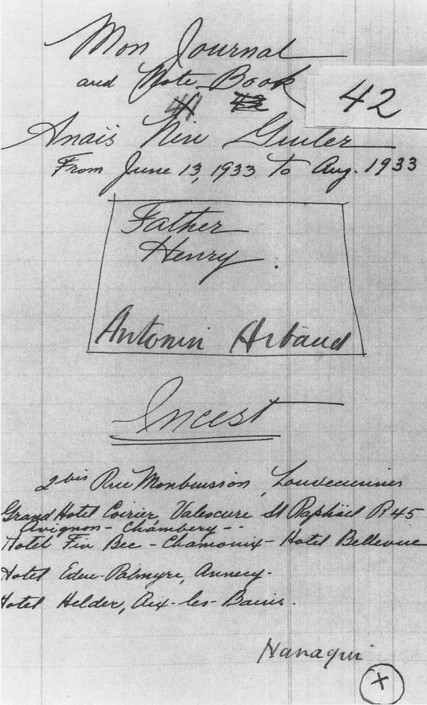 Mon Journal
and Note-Book
41 42
42
Anaïs Nin Guiler
From June 13, 1933 to Aug. 1933
Father
Henry
Antonin Artaud
Incest
2 bis Rue Monbuisson, Louveciennes
Grand Hotel Coirier, Valescure St Raphaël R 45
Avignon - Chambery - -
Hotel Fin Bec - Chamonix - Hotel Bellevue
Hotel Eden-Palmyre, Annecy.
Hotel Helder, Aix-les-Bains.
Nanaqui